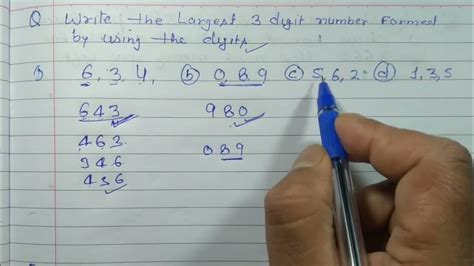 Q Write the Largest 3 digit number formed
by using the digits
6, 3, 4, (b) 0, 8, 9 (c) 5, 6, 2 (d) 1, 3, 5
643 980
463 089
346
436